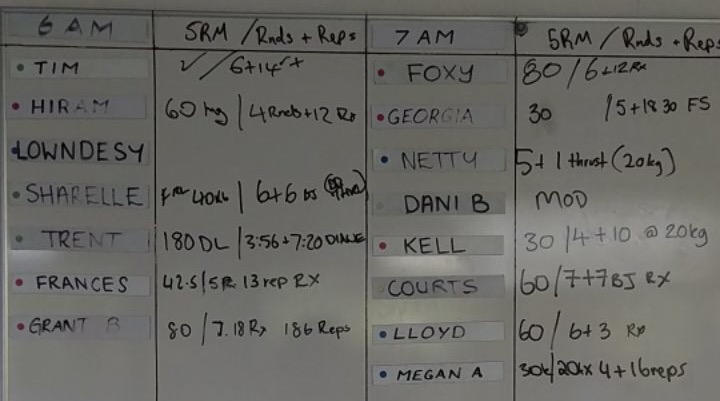 6 AM 5RM / Rnds + Reps
TIM ✓ / 6+14
HIRAM 60 kg / 4 Rnds+12 Rx
LOWNDESY
SHARELLE 40kg / 6+6
TRENT 180 DL / 3:56+7:20 DIANE
FRANCES 42.5 / 5R 13 rep RX
GRANT B 80 / 7.18 Rx 186 Reps
7 AM 5RM / Rnds + Reps
FOXY 80 / 6+12 Rx
GEORGIA 30 / 5+18 30 FS
NETTY 5+1 thrust (20kg)
DANI B MOD
KELL 30 / 4+10 @ 20kg
COURTS 60 / 7+7 BJ RX
LLOYD 60 / 6+3 Rx
MEGAN A 30k / 20k 4+16 reps